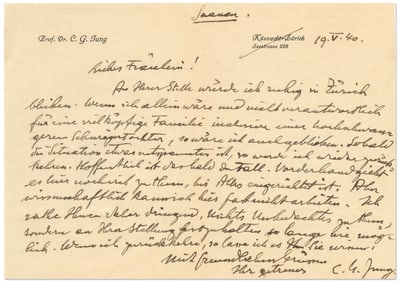 Saanen.
Prof. Dr. C. G. Jung
Küsnacht-Zürich
Seestrasse 228
19.V.40.
Liebes Fräulein!
An Ihrer Stelle würde ich ruhig in Zürich
bleiben. Wenn ich allein wäre und nicht verantwortlich
für eine vielköpfige Familie inclusive einer hochschwan-
geren Schwiegertochter, so wäre ich auch geblieben. Sobald
die Situation etwas entspannter ist, so werde ich wieder zurück-
kehren. Hoffentlich ist das bald der Fall. Vorderhand giebt
es hier noch viel zu thun, bis Alles eingerichtet ist. Aber
wissenschaftlich kann ich hier fast nicht arbeiten. Ich
rathe Ihnen daher dringend, Nichts Unbedachtes zu thun,
sondern an Ihrer Stellung festzuhalten so lange wie mög-
lich. Wenn ich zurückkehre, so lasse ich es Sie wissen!
Mit freundlichen Grüssen
Ihr getreuer
C. G. Jung.